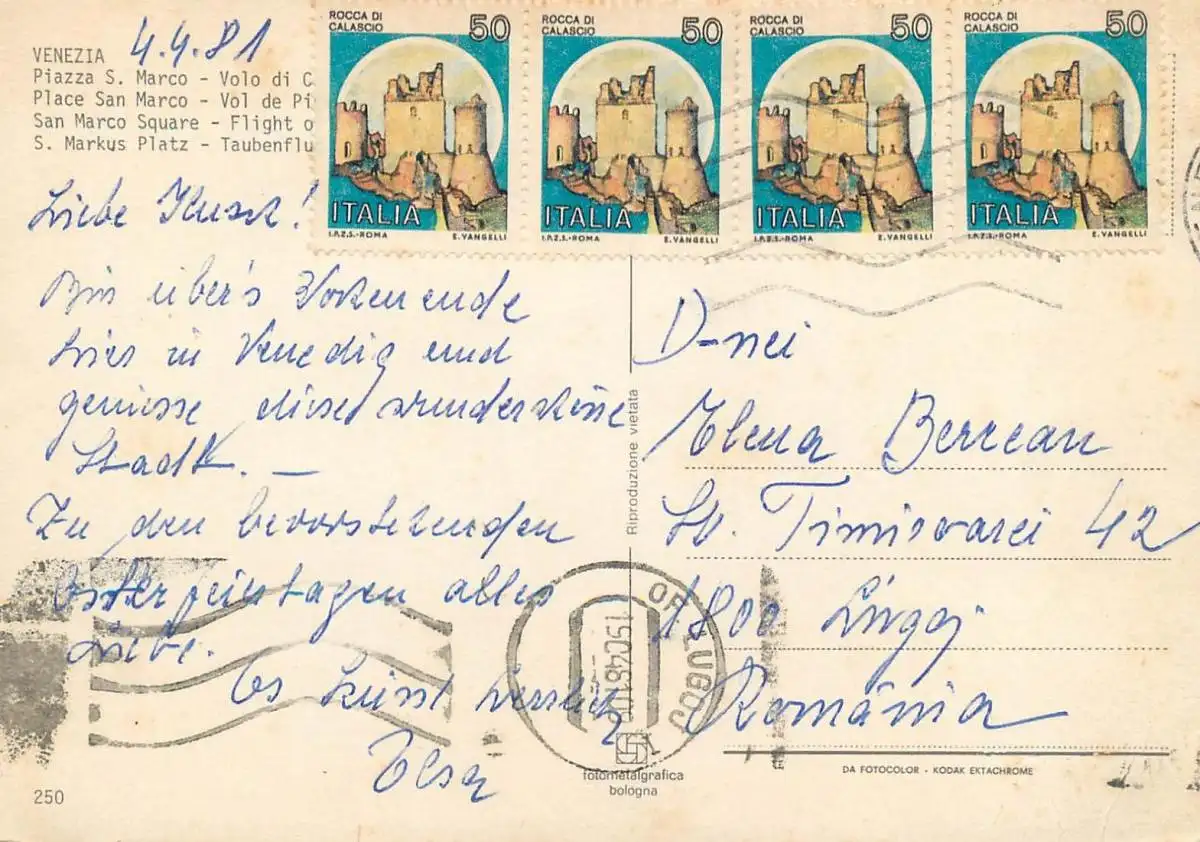 VENEZIA 4.4.81
Piazza S. Marco - Volo di C
Place San Marco - Vol de Pi
San Marco Square - Flight o
S. Markus Platz - Taubenflu
ROCCA DI CALASCIO 50
ITALIA
I.P.Z.S.-ROMA E. VANGELLI
ROCCA DI CALASCIO 50
ITALIA
I.P.Z.S.-ROMA E. VANGELLI
ROCCA DI CALASCIO 50
ITALIA
I.P.Z.S.-ROMA E. VANGELLI
ROCCA DI CALASCIO 50
ITALIA
I.P.Z.S.-ROMA E. VANGELLI
Liebe
Bin über's Wochenende
hier in Venedig und
geniesse diese wunderschöne
Stadt. —
Zu den bevorstehenden
Osterfeiertagen alles
Liebe.
Es küsst herzlich
Elsa
D-nei
Elena Berrean
St. Timisoarei 42
1800 Lugoj
România
Riproduzione vietata
LUGOJ
fotometalgrafica
bologna
DA FOTOCOLOR - KODAK EKTACHROME
250